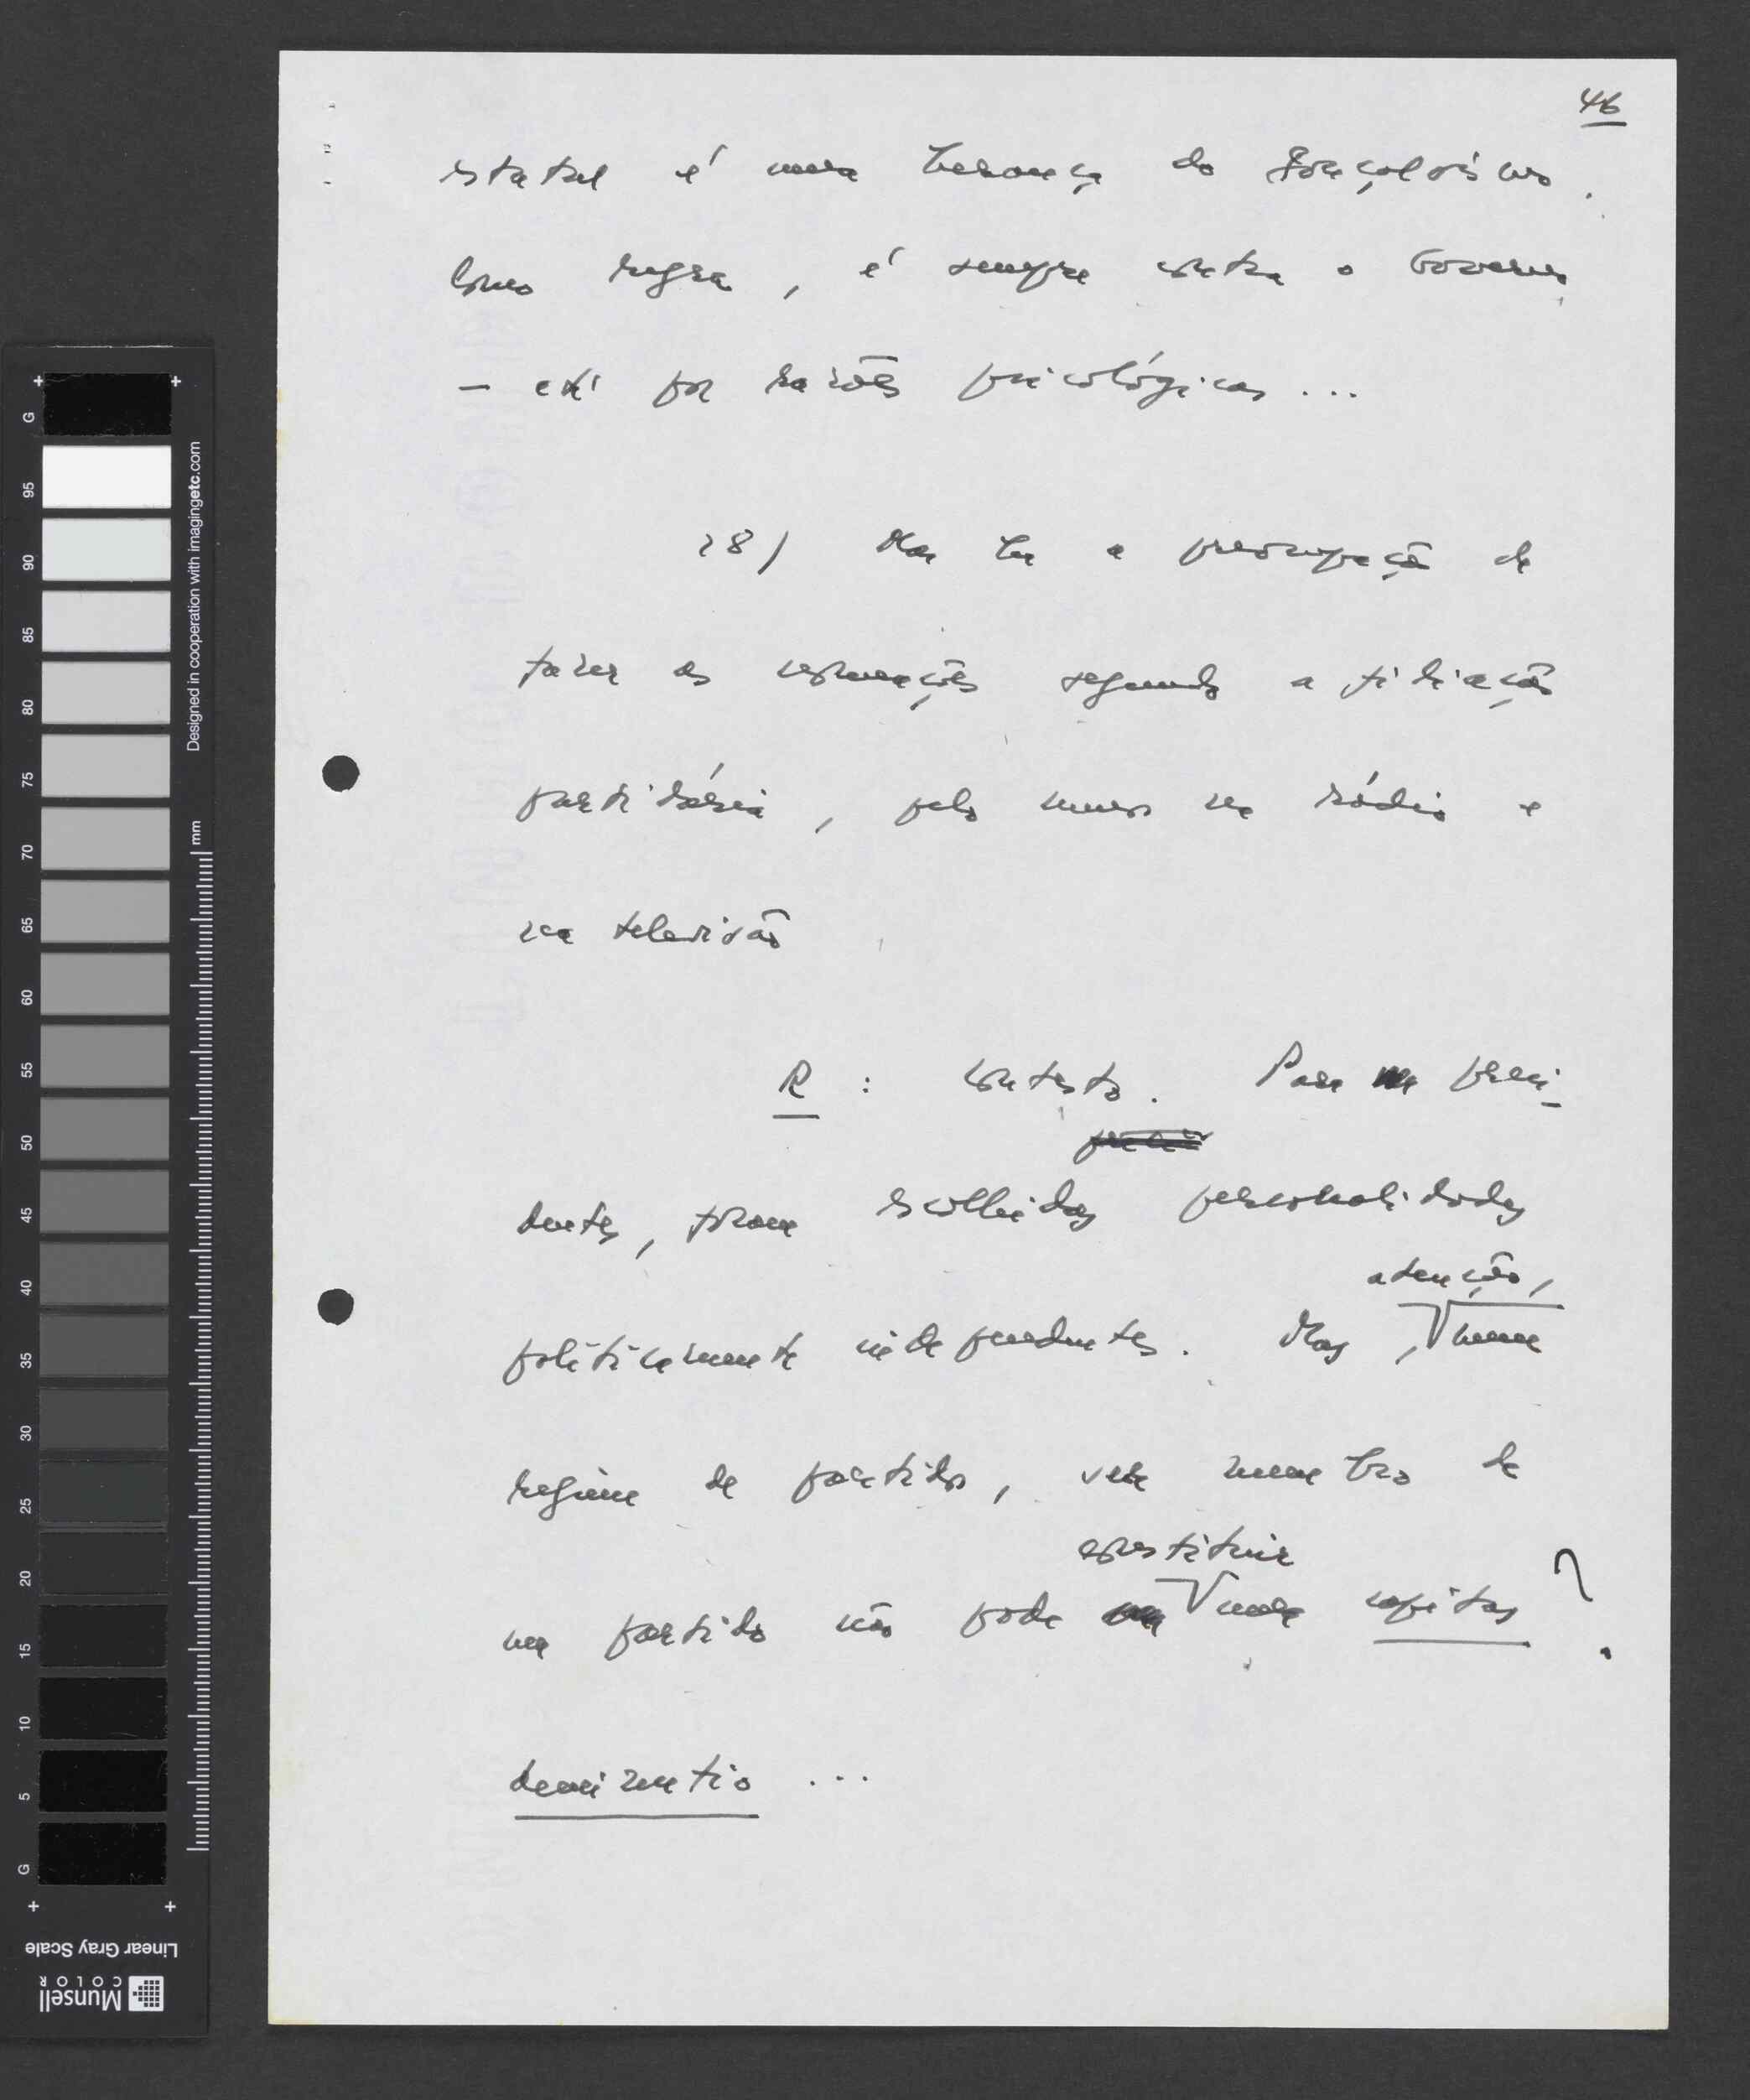 46
estatal é uma herança do Gonçalvismo.
Como regra, é sempre contra o Governo
- até por razões psicológicas ...
28) Mas há a preocupação de
fazer as nomeações segundo a filiação
partidária, pelo menos na rádio e
na televisão
R : Contesto. Para presi-
dentes, foram escolhidas personalidades
atenção,
politicamente independentes. Mas, num
regime de partidos, ser membro de
constituir
um partido não pode uma capitis ?
deminutio ...
G 95 90 85 80 75 70 65 60 55 50 45 40 35 30 25 20 15 10 5 G
Designed in cooperation with imagingetc.com
mm
Linear Gray Scale
Munsell
COLOR